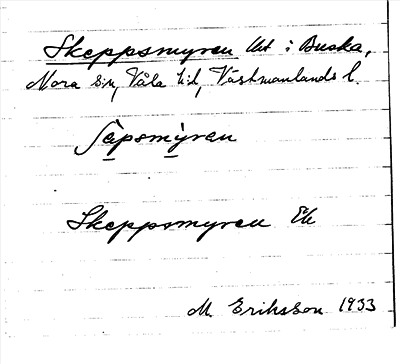 Skeppsmyren Urt i Buska,
Nora Sn, Våla hd, Västmanlands l.
ʃäpsmỳren
Skeppsmyren Ek
M. Eriksson 1933